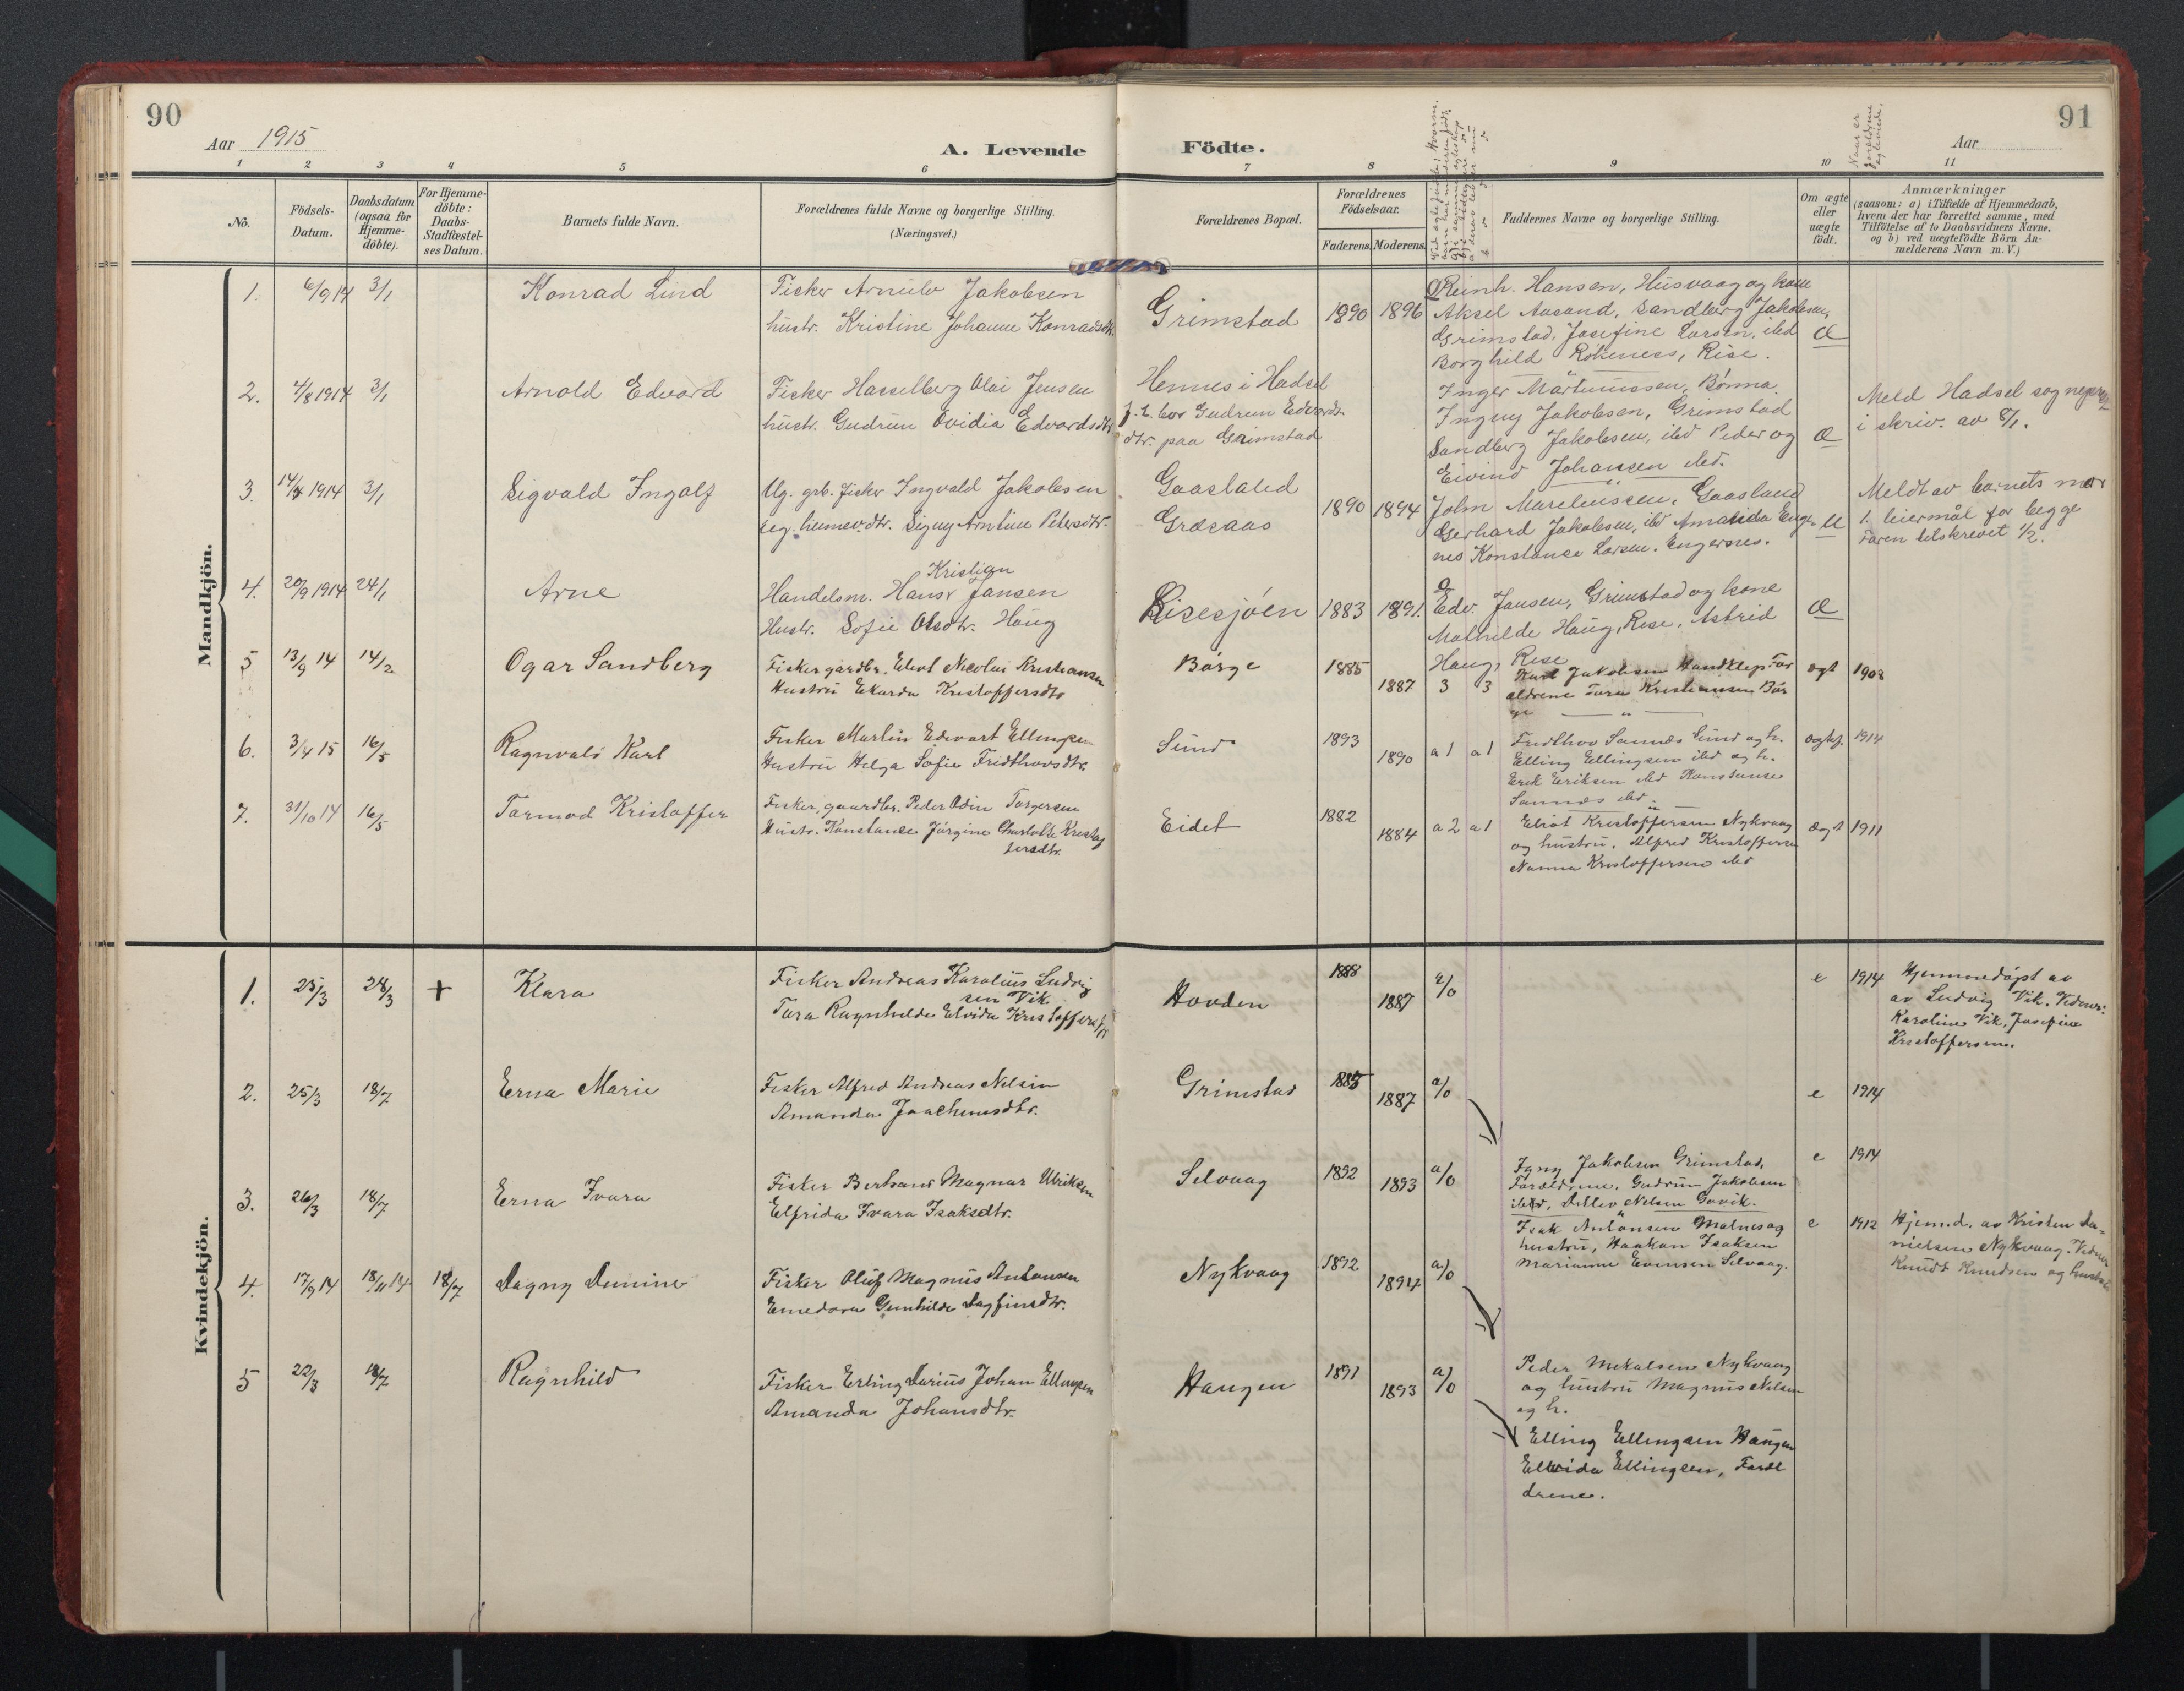 90
91
Aar 1915
A. Levende
Födte.
Aar
1 2 3 4 5 6 7 8 9 10 11
No.
Födsels-
Datum.
Daabsdatum
(ogsaa for
Hjemme-
döbte).
For Hjemme-
döbte:
Daabs-
Stadfæstel-
ses Datum.
Barnets fulde Navn.
Forældrenes fulde Navne og borgerlige Stilling.
(Næringsvei.)
Forældrenes Bopæl.
Forældrenes
Födselsaar.
Faderens. Moderens.
Faddernes Navne og borgerlige Stilling.
Om ægte
eller
uægte
födt.
Anmærkninger
(saasom: a) i Tilfælde af Hjemmedaab,
hvem der har forrettet samme, med
Tilföielse af to Daabsvidners Navne.
og b) ved uægtefödte Börn An-
melderens Navn m. V.)
Naar er
forældrene
egteviede.
Mandkjön.
1. 6/9 14 3/1 Konrad Lind
Fisker Arnulv Jakobsen
hustr. Kristine Johanne Konradsdtr.
Grimstad 1890 1896
Reinh. Hansen, Husvaag og kone
Aksel Aasand, Sandberg Jakobsen,
Grimstad, Josefine Larsen, ibd
Borghild Rökenes, Rise.
Æ
2. 4/8 1914 3/1 Arnold Edvard
Fisker Hasselberg Olai Jensen
hustr. Gudrun Ovidia Edvardsdtr
Hennes i Hadsel
f. t. bor Gudrun Edvards-
dtr. paa Grimstad
Inger Martinussen, Bönna
Ingny Jakobsen, Grimstad
Sandberg Jakobsen, ibd Peder og
Eivind Johansen ibd.
Æ
Meld Hadsel sogneprest
i skriv. av 8/1.
3. 14/7 1914 3/1 Sigvald Ingolf
Ug. grb. fisker Ingvald Jakobsen
og hiemev. dtr. Signy Arntine Petersdtr.
Gaasland
Græsaas
1890 1894
John Mareliussen, Gaasland
Gerhard Jakobsen, ibd Amanda Enger-
nes Konstanse Larsen, Engernes.
U
Meldt av barnets mor
1. leiermål for begge
Faren tilskrevet 1/2.
4. 20/9 1914 24/1 Arne
Handelsm. Hans Kristian Jansen
Hustr. Sofie Olsdtr. Haug
Risesjöen 1883 1891.
Edv. Jansen, Grimstad og kone
Mathilde Haug, Rise, Astrid
Haug, Rise
Æ
5 13/9 14 14/2 Ogar Sandberg
Fisker gardbr. Eliot Nicolai Kristiansen
Hustru Ekarda Kristoffersdtr
Börge 1885
1887 3 3
Karl Jakobsen Handklep. For
ældrene Tora Kristiansen Bör
ge
egt 1908
6. 3/4 15 16/5 Ragnvald Karl
Fisker Martin Edevart Ellingsen
Hustru Helga Sofie Fridthovsdtr.
Sund 1893
1890 a 1 a 1
Fridthov Sannes Sund og h.
Elling Ellingsen ibd og h.
Erik Eriksen ibd Konstanse
Sannes ibd.
1914
7. 31/10 14 16/5 Tormod Kristoffer
Fisker, gaardbr. Peder Odin Torgersen
Hustr. Konstanse Jörgine Charlotte Kristof
fersdtr.
Eidet 1882
1884 a 2 a 1
Eliot Kristoffersen Nykvaag
og hustru. Alfred Kristoffersen
Nanna Kristoffersen ibd
ægt 1911
Kvindekjön.
1. 25/3 28/3 + Klara
Fisker Andreas Karolius Ludvig
sen Vik
Tora Ragnhilda Elvida Kristoffersdtr
Hovden 1888
1887 a/0
e 1914 Hjemmedöpt av
av Ludvig Vik. Vidner:
Karoline Vik, Josefine
Kristoffersen.
2. 25/3 18/7 Erna Marie
Fisker Alfred Andreas Nilsen
Amanda Joachimsdtr.
Grimstad 1885
1887 a/0
e 1914
3. 26/3 18/7 Erna Ivara
Fisker Berthans Magnar Ulriksen
Elfrida Ivara Isaksdtr.
Selvaag 1892
1893 a/0
Igny Jakobsen Grimstad,
Forældrene, Gudrun Jakobsen
ibd, Detlev Nilsen Govik.
e 1914
4. 17/9 14 18/11 14 18/7 Dagny Denine
Fisker Oluf Magnus Antonsen
Emedora Gunhilda Dagfinsdtr.
Nykvaag 1892
1894 a/0
Isak Antonsen Malnes og
hustru, Haakon Isaksen
Marianne Evensen Selvaag.
e 1912 Hjem.d. av Kristen Da-
nielsen Nykvaag. Vidner
Knudt Knudsen og hustru
5 22/3 18/7 Ragnhild
Fisker Erling Darius Johan Ellingsen
Amanda Johansdtr.
Haugen 1891
1893 a/0
Peder Mikalsen Nykvaag
og hustru Magnus Nilsen
og h.
Elling Ellingsen Haugen
Ellida Ellingsen, Foræl
drene.